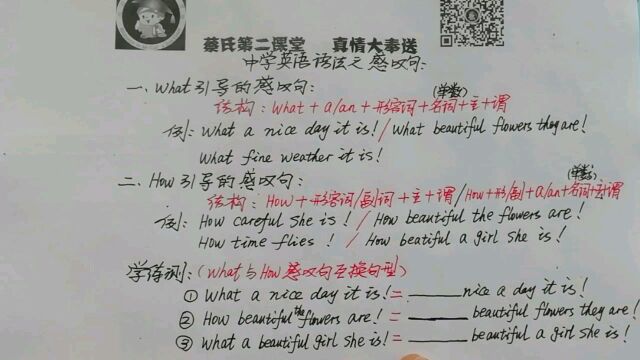 蔡氏第二课堂 真情大奉送
中学英语语法之感叹句:
一、What引导的感叹句:
(单数)
结构: What + a/an + 形容词 + 名词 + 主 + 谓
例: What a nice day it is! / What beautiful flowers they are!
What fine weather it is!
二、How引导的感叹句:
(单数)
结构: How + 形容词/副词 + 主 + 谓 / How + 形/副 + a/an + 名词 + 主 + 谓
例: How careful she is! / How beautiful the flowers are!
How time flies! / How beatiful a girl she is!
学练测: (What与How感叹句互换句型)
① What a nice day it is! = ______ nice a day it is!
② How beautiful the flowers are! = ______ beautiful flowers they are!
③ What a beautiful girl she is! = ______ beautiful a girl she is!